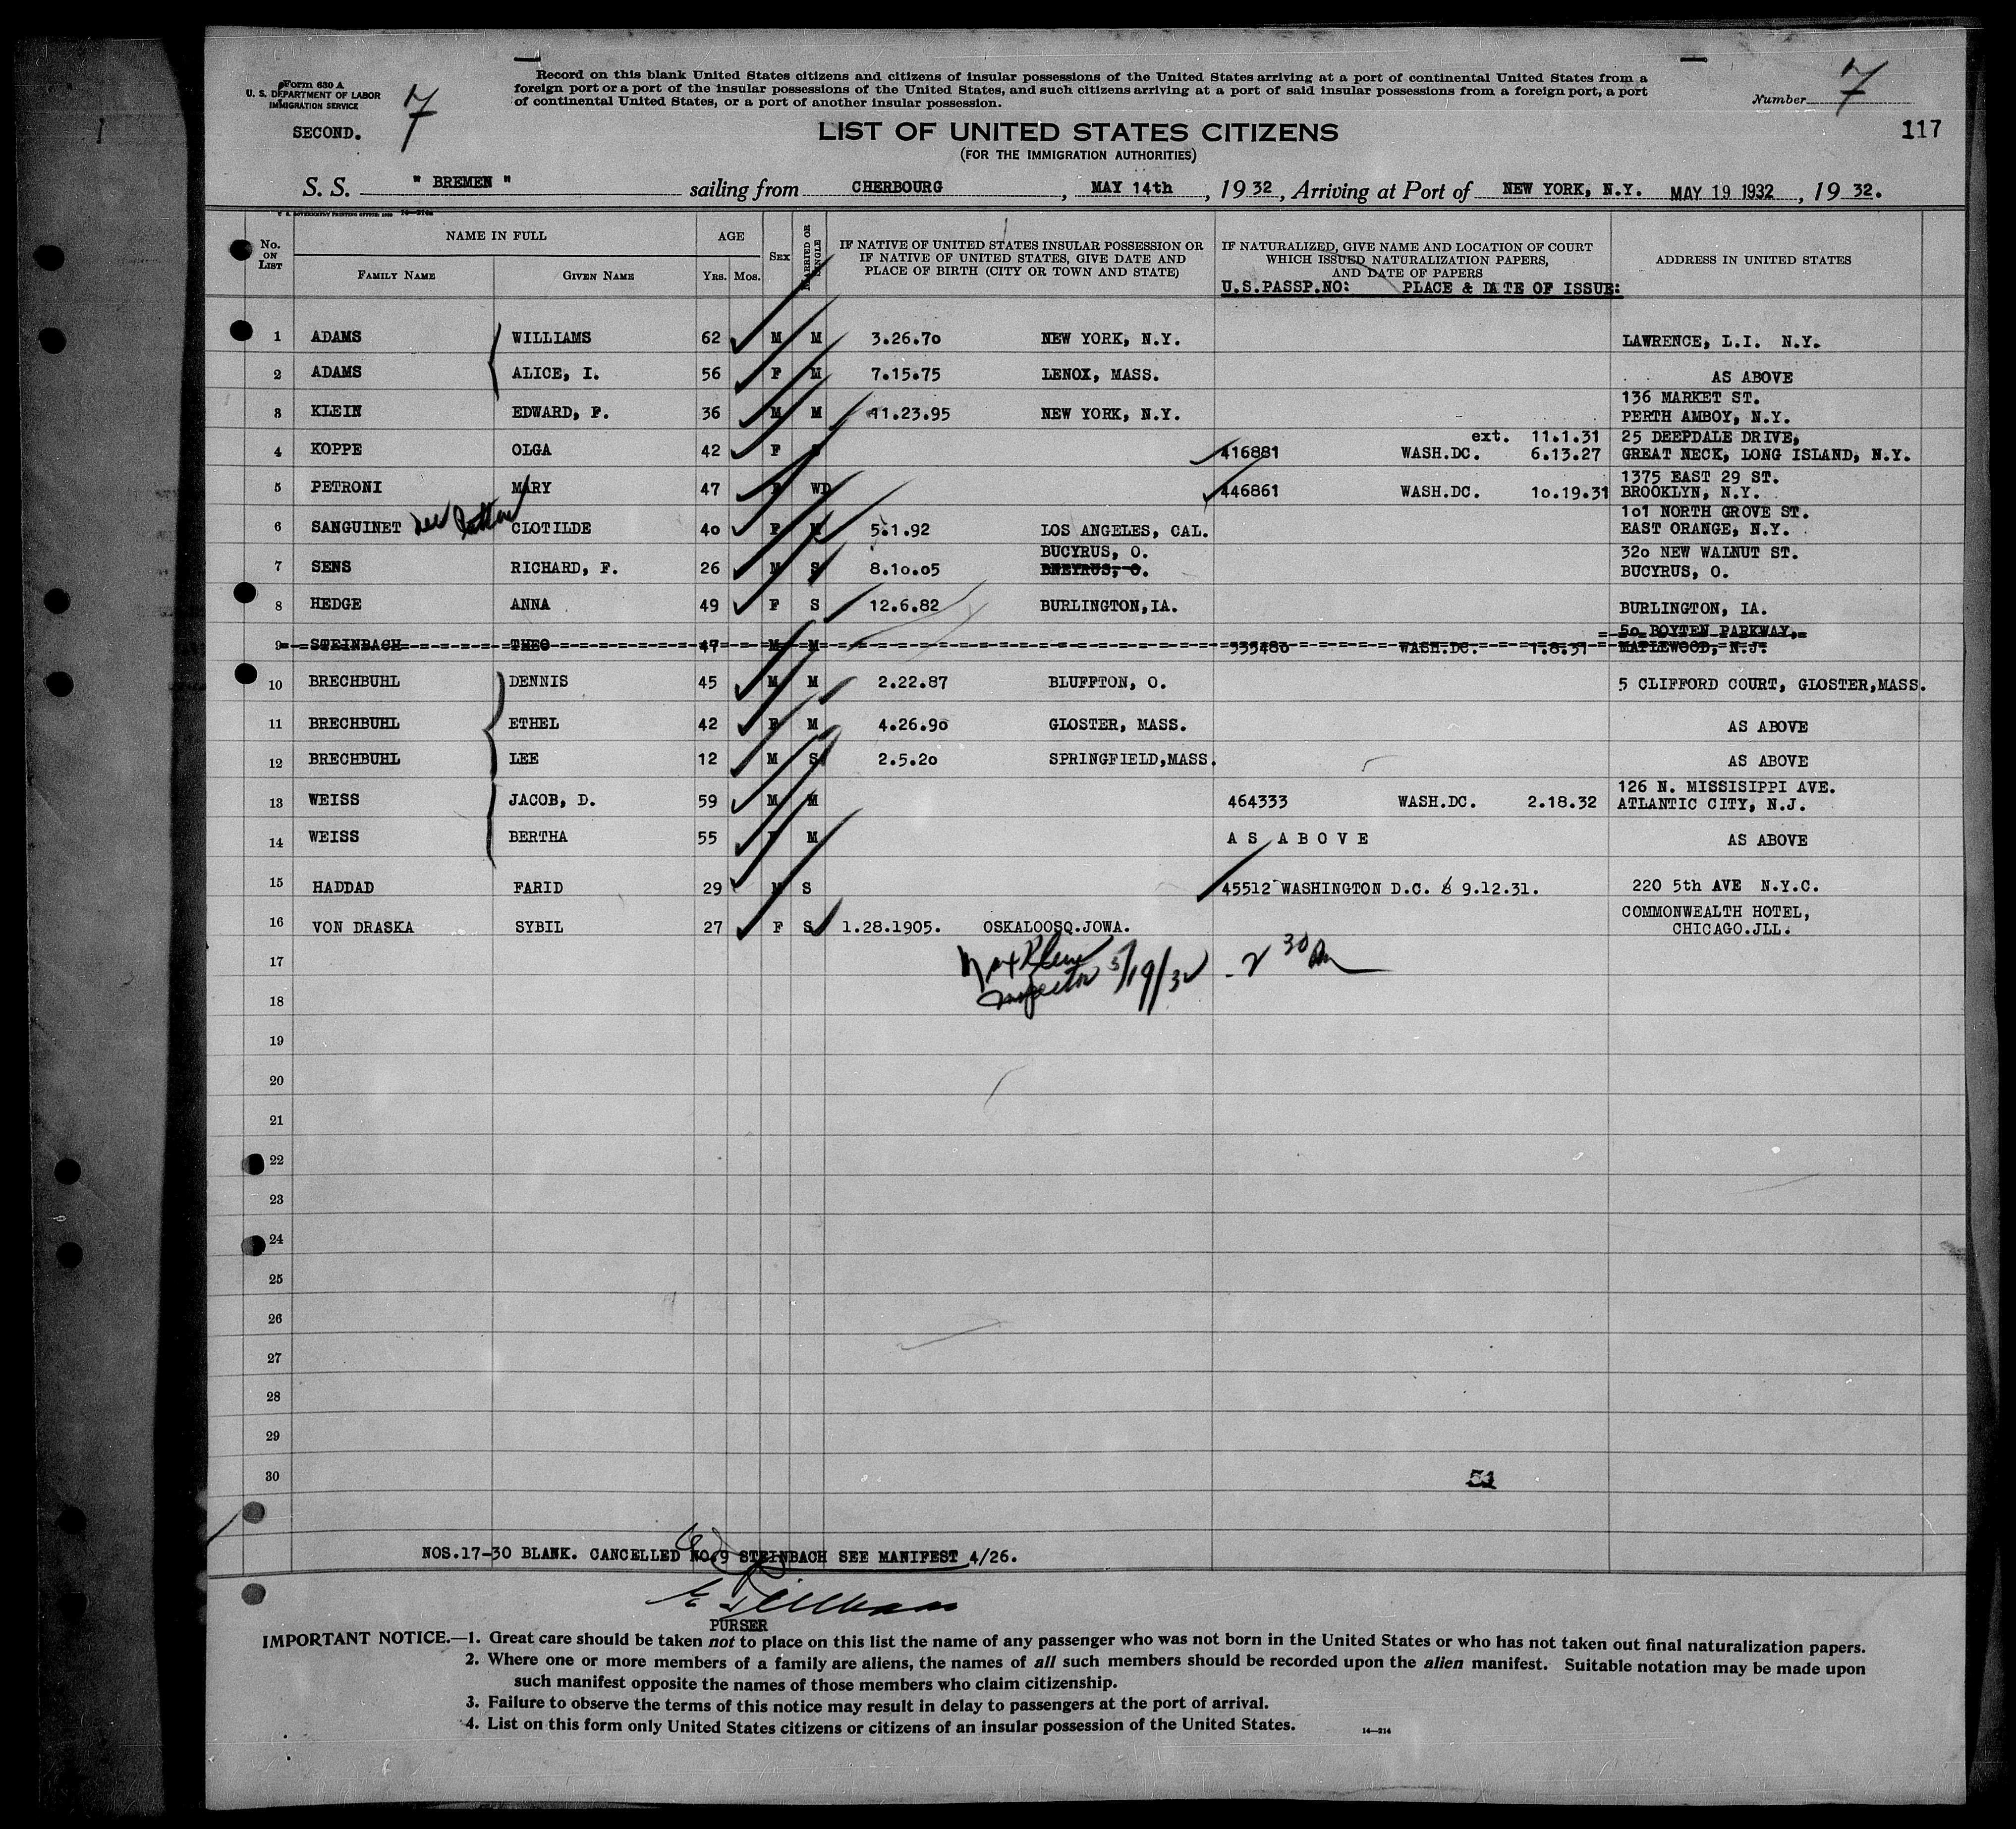 Form 630 A
U. S. DEPARTMENT OF LABOR
IMMIGRATION SERVICE
SECOND.
7
Record on this blank United States citizens and citizens of insular possessions of the United States arriving at a port of continental United States from a
foreign port or a port of the insular possessions of the United States, and such citizens arriving at a port of said insular possessions from a foreign port, a port
of continental United States, or a port of another insular possession.
Number 7
117
LIST OF UNITED STATES CITIZENS
(FOR THE IMMIGRATION AUTHORITIES)
S. S. " BREMEN " sailing from CHERBOURG, MAY 14th, 1932, Arriving at Port of NEW YORK, N.Y. MAY 19 1932, 1932.
U. S. GOVERNMENT PRINTING OFFICE: 1930 14—214
No. ON LIST
NAME IN FULL
FAMILY NAME GIVEN NAME
AGE
YRS. MOS.
SEX
MARRIED OR SINGLE
IF NATIVE OF UNITED STATES INSULAR POSSESSION OR
IF NATIVE OF UNITED STATES, GIVE DATE AND
PLACE OF BIRTH (CITY OR TOWN AND STATE)
IF NATURALIZED, GIVE NAME AND LOCATION OF COURT
WHICH ISSUED NATURALIZATION PAPERS,
AND DATE OF PAPERS
U.S.PASSP.NO: PLACE & DATE OF ISSUE:
ADDRESS IN UNITED STATES
1 ADAMS WILLIAMS 62 M M 3.26.70 NEW YORK, N.Y. LAWRENCE, L.I. N.Y.
2 ADAMS ALICE, I. 56 F M 7.15.75 LENOX, MASS. AS ABOVE
136 MARKET ST.
3 KLEIN EDWARD, F. 36 M M 11.23.95 NEW YORK, N.Y. PERTH AMBOY, N.Y.
ext. 11.1.31 25 DEEPDALE DRIVE,
4 KOPPE OLGA 42 F S 416881 WASH.DC. 6.13.27 GREAT NECK, LONG ISLAND, N.Y.
1375 EAST 29 ST.
5 PETRONI MARY 47 F WD 446861 WASH.DC. 10.19.31 BROOKLYN, N.Y.
101 NORTH GROVE ST.
6 SANGUINET CLOTILDE 40 F M 5.1.92 LOS ANGELES, CAL. EAST ORANGE, N.Y.
BUCYRUS, O. 320 NEW WALNUT ST.
7 SENS RICHARD, F. 26 M S 8.10.05 BNEYRUS, O. BUCYRUS, O.
8 HEDGE ANNA 49 F S 12.6.82 BURLINGTON,IA. BURLINGTON, IA.
50 BOYTEN PARKWAY,
9 STEINBACH THEO 47 M M 335480 WASH.DC. 1.8.31 MAPLEWOOD, N.J.
10 BRECHBUHL DENNIS 45 M M 2.22.87 BLUFFTON, O. 5 CLIFFORD COURT, GLOSTER,MASS.
11 BRECHBUHL ETHEL 42 F M 4.26.90 GLOSTER, MASS. AS ABOVE
12 BRECHBUHL LEE 12 M S 2.5.20 SPRINGFIELD,MASS. AS ABOVE
126 N. MISSISIPPI AVE.
13 WEISS JACOB, D. 59 M M 464333 WASH.DC. 2.18.32 ATLANTIC CITY, N.J.
14 WEISS BERTHA 55 F M A S A B O V E AS ABOVE
15 HADDAD FARID 29 M S 45512 WASHINGTON D.C. 9.12.31. 220 5th AVE N.Y.C.
COMMONWEALTH HOTEL,
16 VON DRASKA SYBIL 27 F S 1.28.1905. OSKALOOSQ.JOWA. CHICAGO.JLL.
17
Inspector 5/19/32 - 2 30
18
19
20
21
22
23
24
25
26
27
28
29
30
NOS.17-30 BLANK. CANCELLED NO.9 STEINBACH SEE MANIFEST 4/26.
PURSER
IMPORTANT NOTICE.—1. Great care should be taken not to place on this list the name of any passenger who was not born in the United States or who has not taken out final naturalization papers.
2. Where one or more members of a family are aliens, the names of all such members should be recorded upon the alien manifest. Suitable notation may be made upon
such manifest opposite the names of those members who claim citizenship.
3. Failure to observe the terms of this notice may result in delay to passengers at the port of arrival.
4. List on this form only United States citizens or citizens of an insular possession of the United States.
14—214